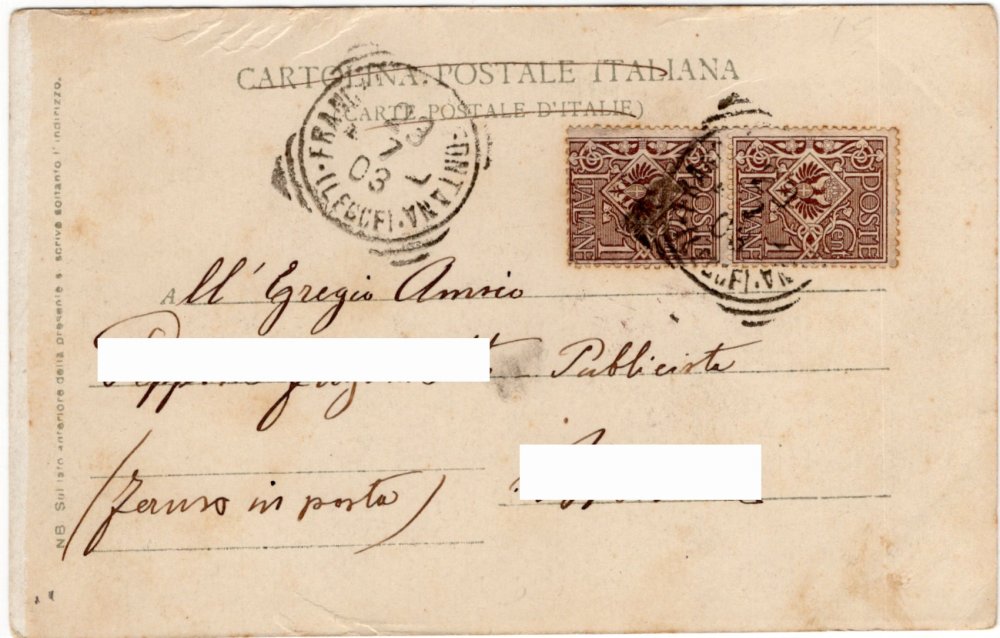 CARTOLINA POSTALE ITALIANA
(CARTE POSTALE D'ITALIE)
FRANC FONTANA
(LECCE)
7
03
POSTE
ITALIANE
1
POSTE
ITALIANE
CENT. 1
All' Egregio Amico
Pubblicista
(fermo in posta)
NB. Sul lato anteriore della presente si scrive soltanto l'indirizzo.